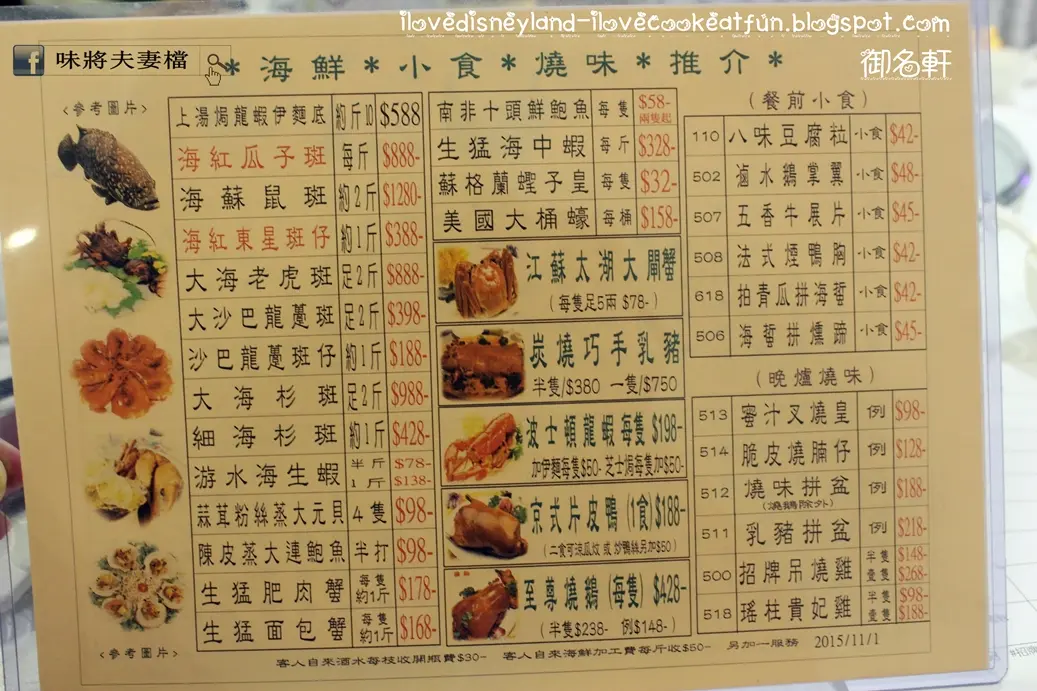 ilovedisneyland-ilovecookeatfun.blogspot.com
味將夫妻檔
御名軒
*海鮮*小食*燒味*推介*
<參考圖片>
上湯焗龍蝦伊麵底 約斤10 $588
海紅瓜子斑 每斤 $888-
海蘇鼠斑 約2斤 $1280-
海紅東星斑仔 約1斤 $388-
大海老虎斑 足2斤 $888-
大沙巴龍躉斑 足2斤 $398-
沙巴龍躉斑仔 約1斤 $188-
大海杉斑 足2斤 $988-
細海杉斑 約1斤 $428-
游水海生蝦 半斤 $78-
1斤 $138-
蒜茸粉絲蒸大元貝 4隻 $98-
陳皮蒸大連鮑魚 半打 $98-
生猛肥肉蟹 每隻約1斤 $178-
生猛面包蟹 每隻約1斤 $168-
<參考圖片>
南非十頭鮮鮑魚 每隻 $58-
兩隻起
生猛海中蝦 每斤 $328-
蘇格蘭蟶子皇 每隻 $32-
美國大桶蠔 每桶 $158-
江蘇太湖大閘蟹
(每隻足5兩 $78-)
炭燒巧手乳豬
半隻/$380 一隻/$750
波士頓龍蝦每隻 $198-
加伊麵每隻$50- 芝士焗每隻加$50-
京式片皮鴨 (1食)$188-
(二食可涼瓜炆 或 炒鴨絲另加$50)
至尊燒鵝 (每隻) $428-
(半隻$238- 例$148-)
(餐前小食)
110 八味豆腐粒 小食 $42-
502 滷水鵝掌翼 小食 $48-
507 五香牛展片 小食 $45-
508 法式煙鴨胸 小食 $42-
618 拍青瓜拼海蜇 小食 $42-
506 海蜇拼燻蹄 小食 $45-
(晚爐燒味)
513 蜜汁叉燒皇 例 $98-
514 脆皮燒腩仔 例 $128-
512 燒味拼盆 例 $188-
(燒鵝除外)
511 乳豬拼盆 例 $218-
500 招牌吊燒雞 半隻 $148-
壹隻 $268-
518 瑤柱貴妃雞 半隻 $98-
壹隻 $188-
客人自來酒水每枝收開瓶費$30- 客人自來海鮮加工費每斤收$50- 另加一服務 2015/11/1